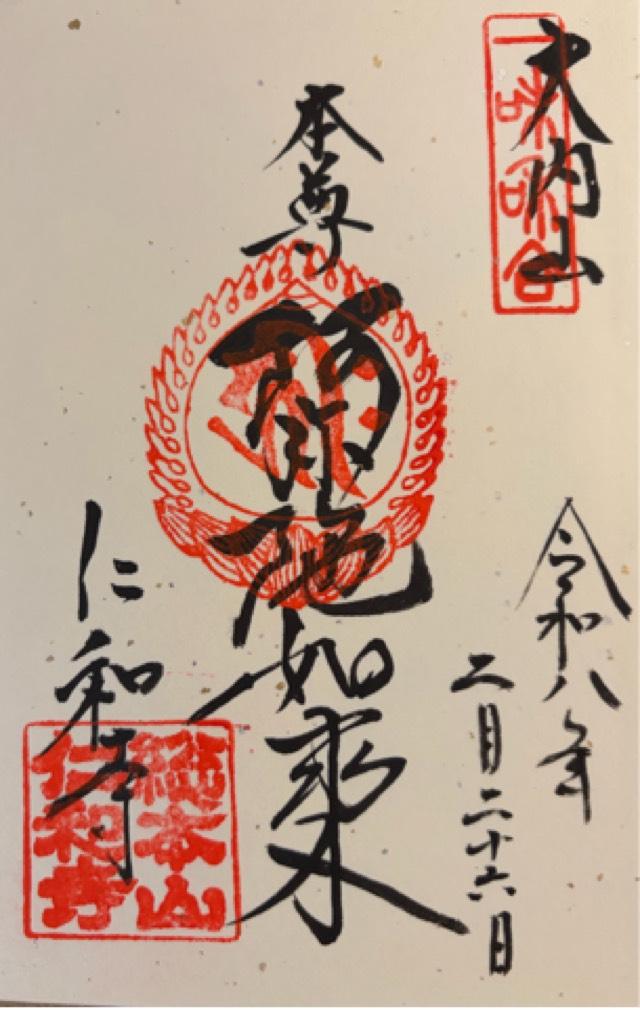 大内山
令和八年
二月二十六日
本尊
阿弥陀如来
仁和寺
総本山
仁和寺